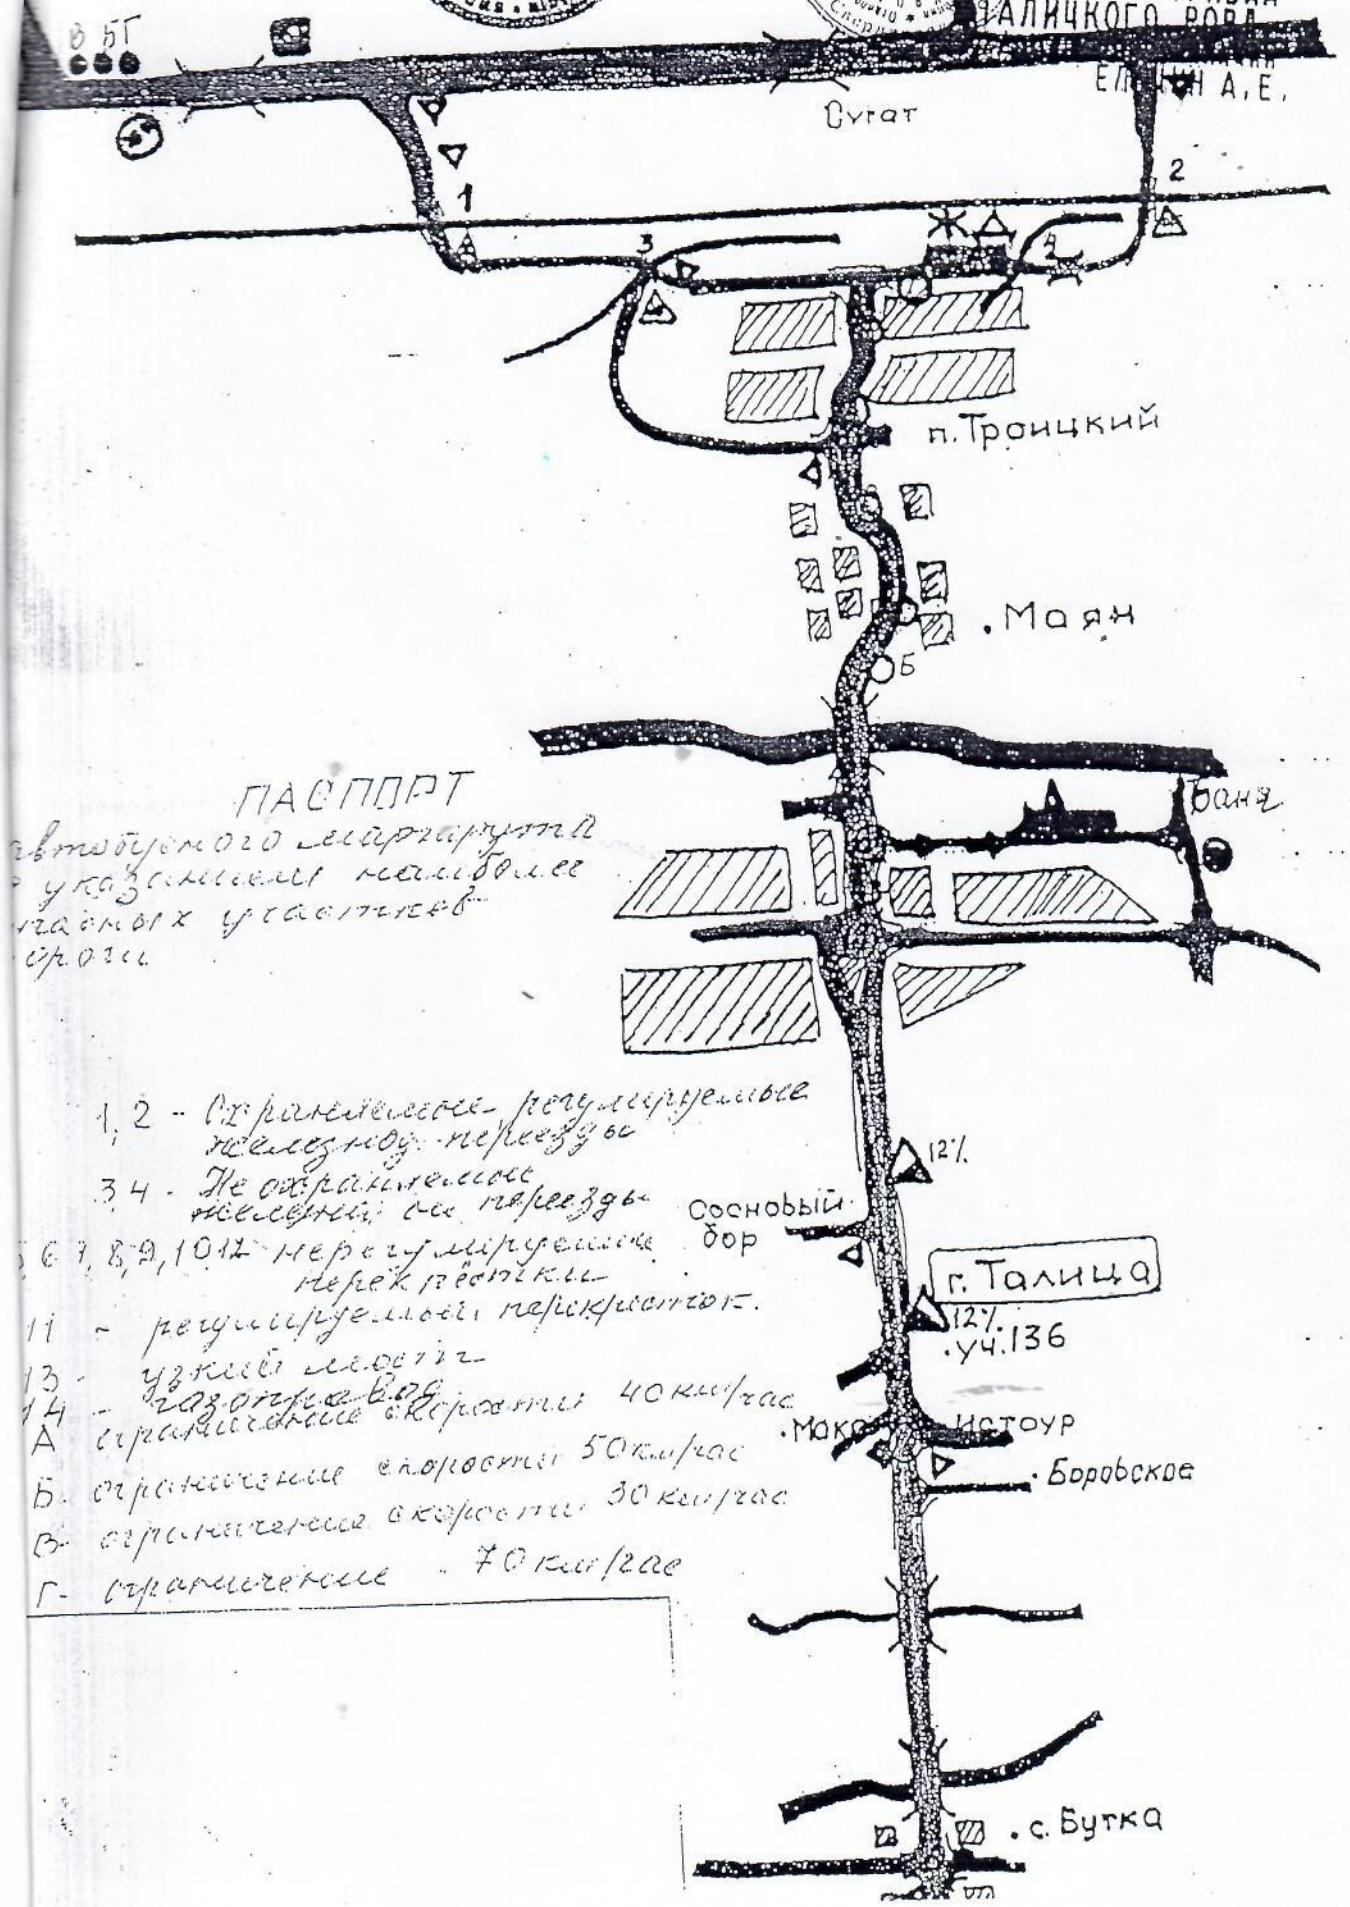 В БГ
ТАЛИЦКОГО РОВД
А.Е.
Сугат
1
2
3
4
п. Троицкий
. Маян
Б
Баня
ПАСПОРТ
автобусного маршрута
с указанием наиболее
опасных участков
дороги
1, 2 - Охраняемые регулируемые
железнод. переезды
3 4 - Не охраняемые
переезды
6 7, 8, 9, 10 12 - нерегулируемые
перекрёстки
11 - регулируемый перекресток.
13 - узкий мост
14 - газопровод
А ограничение скорости 40 км/час
Б - ограничение скорости 50 км/час
В - ограничение скорости 30 км/час
Г - ограничение 70 км/час
12%
Сосновый
бор
г. Талица
12%
. уч. 136
Истоур
. Боровское
. с. Бутка